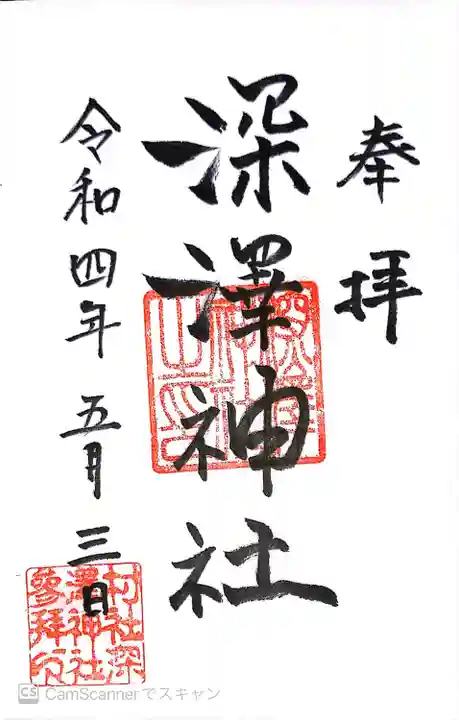 奉拝
深澤神社
令和四年 五月 三日
村社深
澤神社
參拜
CS CamScannerでスキャン